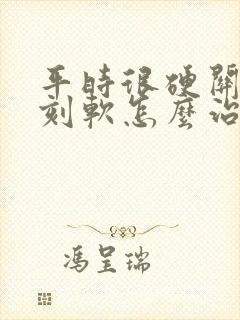 平時很硬關
刻軟怎麼治
馮呈瑞